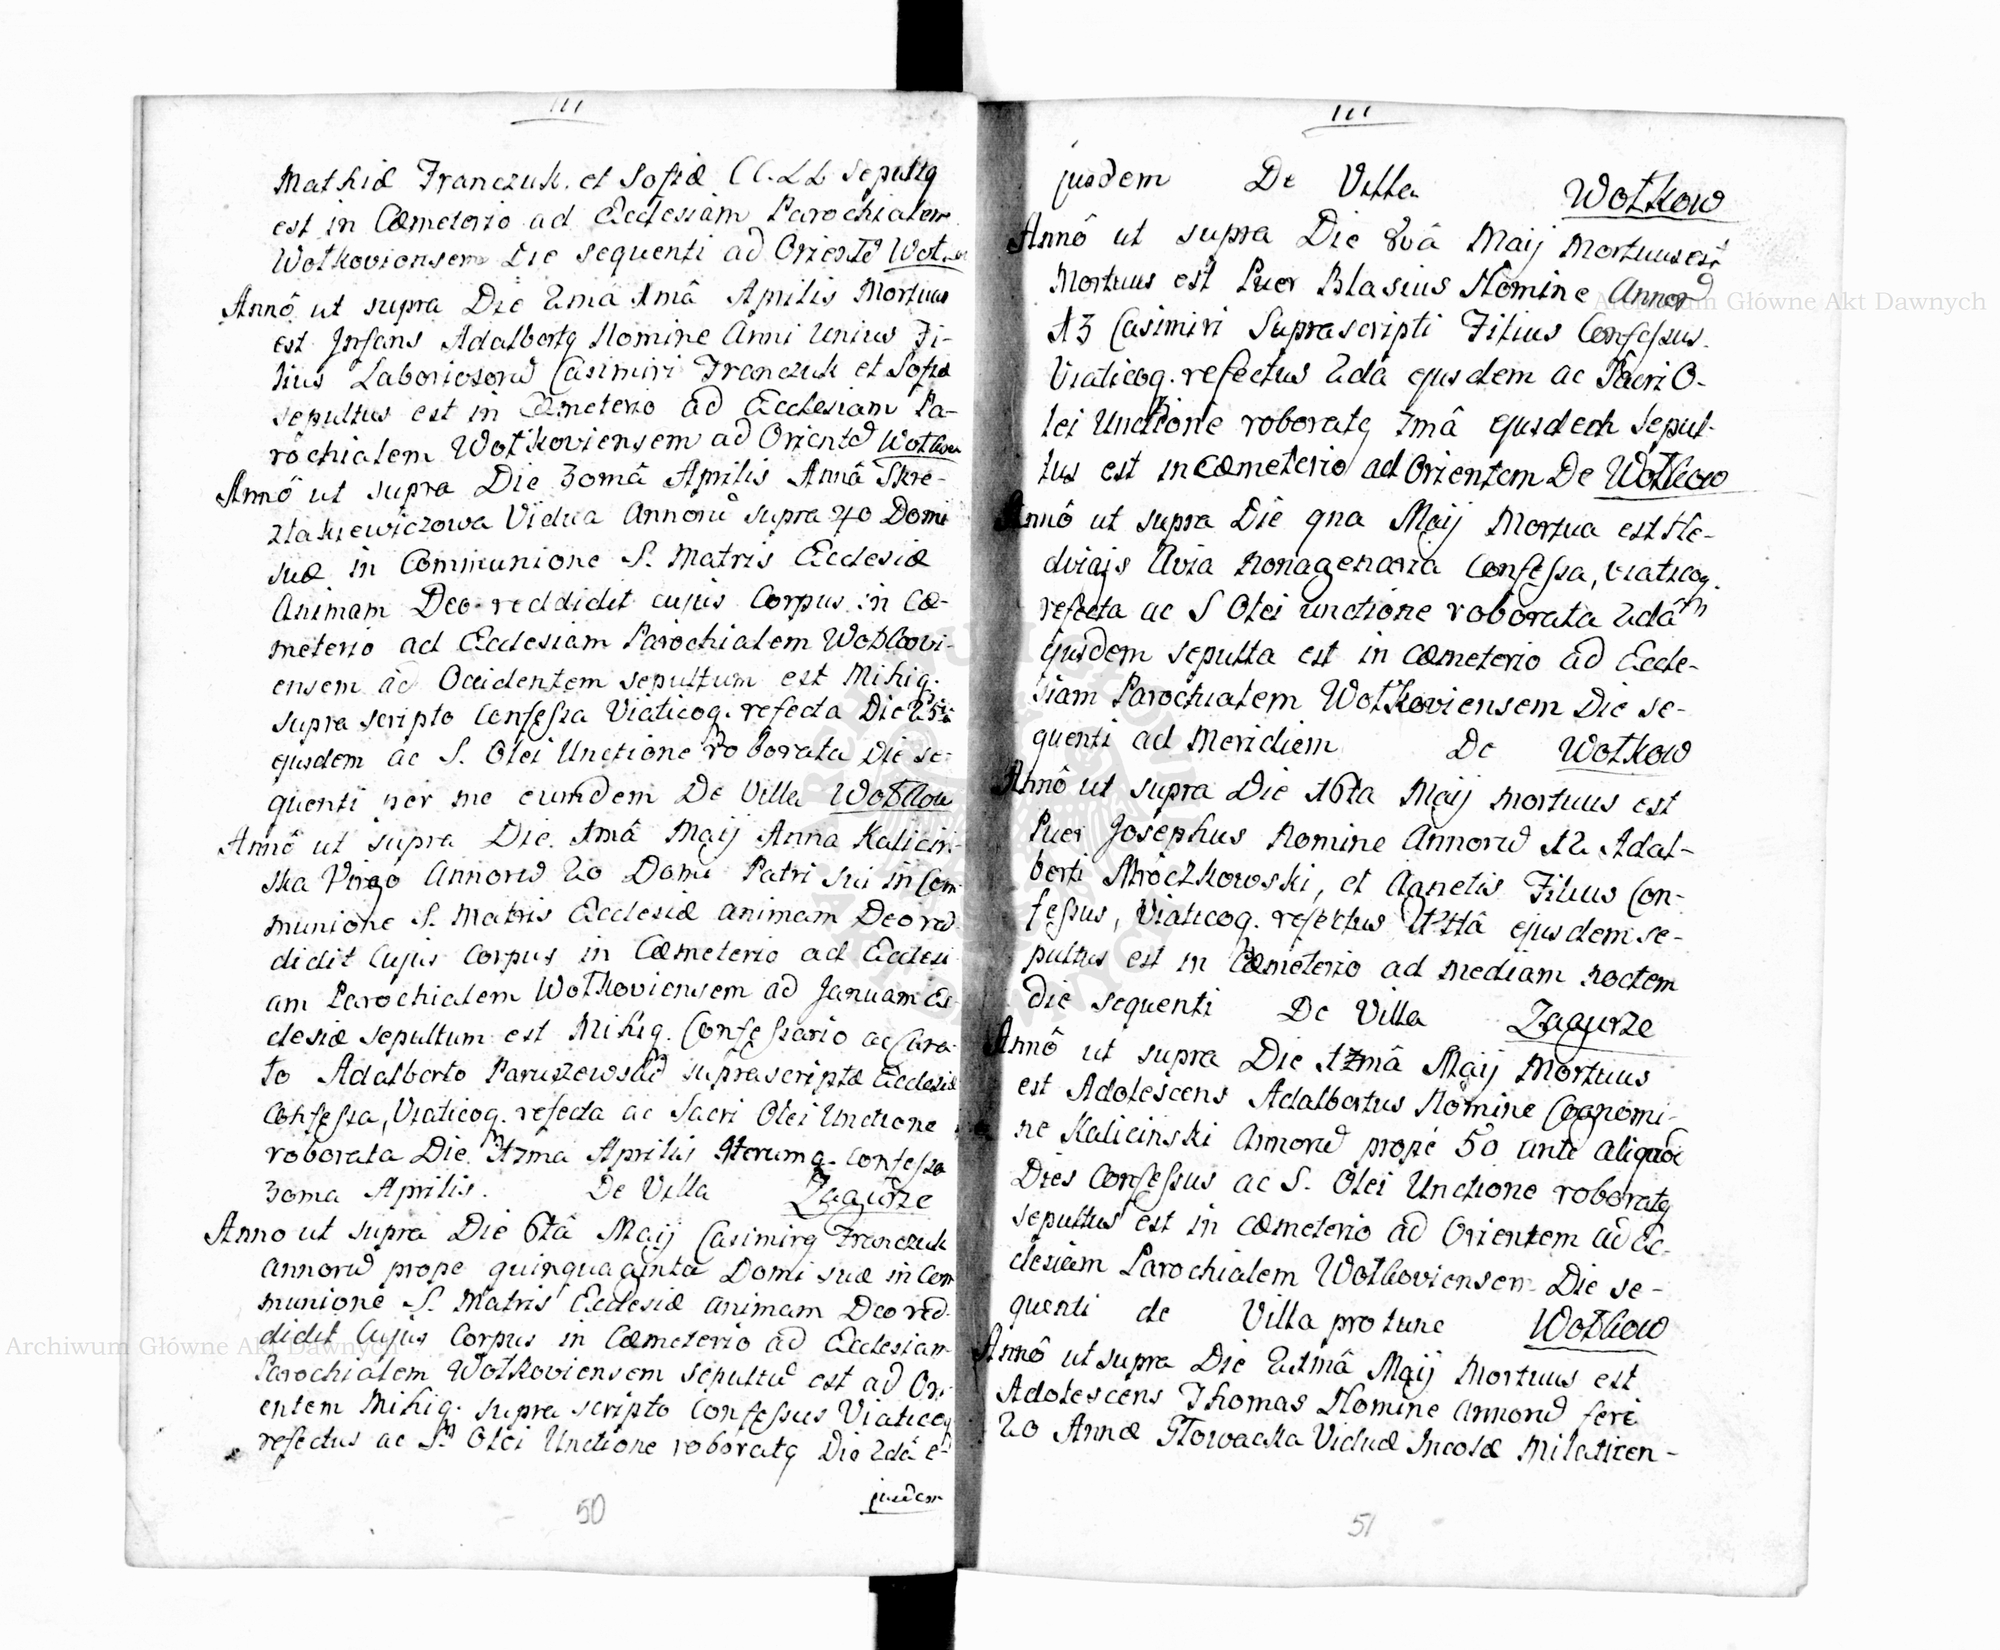 111
Mathiæ Franczuk. et Sofiæ CC. LL sepultq
est in Cæmeterio ad Ecclesiam Parochialem
Wołkoviensem Die sequenti ad Orientē
Annô ut supra Die 2ma Aprilis Mortuus
est Infans Adalbertq Nomine Anni Unius Fi-
lius Laboriosorū Casimiri Franczuk et Sofiæ
sepultus est in Cæmeterio ad Ecclesiam Pa-
rochialem Wołkoviensem ad Orientē Wołkow
Annô ut supra Die 30mâ Aprilis Anna Skre-
Vidua Annorū supra 40 Domi
suæ in Communione S. Matris Ecclesiæ
Animam Deo reddidit cujus Corpus in Cæ-
meterio ad Ecclesiam Parochialem Wołkovi-
ensem ad Occidentem sepultum est Mihiq.
supra scripto Confessa Viaticoq. refecta Die
ejusdem ac S. Olei Unctione roborata Die se-
quenti per me eumdem De Villa Wołkow
Annô ut supra Die 1mâ Maij Anna Kalicin-
ska Virgo Annorū 20 Domi Patri sui in Com-
munione S. Matris Ecclesiæ animam Deo red-
didit Cujus Corpus in Cæmeterio ad Ecclesi-
am Parochialem Wołkoviensem ad Januam Ec-
clesiæ sepultum est Mihiq. Confessario ac Cura-
to Adalberto suprascriptæ Ecclesiæ
Confessa, Viaticoq. refecta ac Sacri Olei Unctione
roborata Die 17ma Aprilis Iterumq. Confessa
30ma Aprilis. De Villa Zagurze
Anno ut supra Die 6tâ Maij Casimirq Franczuk
Annorū prope quinquaginta Domi suæ in Com-
munione S. Matris Ecclesiæ animam Deo red-
didit Cujus Corpus in Cæmeterio ad Ecclesiam
Parochialem Wołkoviensem sepultū est ad Ori-
entem Mihiq. supra scripto Confessus Viaticoq
refectus ac S. Olei Unctione roboratq Die 2dâ e-
jusdem
50
111
jusdem De Villa Wołkow
Annô ut supra Die 8vâ Maij Mortuus est
Mortuus est Puer Blasius Nomine Annorū
13 Casimiri Suprascripti Filius Confessus.
Viaticoq. refectus 2dâ ejusdem ac Sacri O-
lei Unctione roboratq 7mâ ejusdem Sepul-
tus est in Cæmeterio ad Orientem De Wołkow
Annô ut supra Die 9na Maij Mortua est He-
dvigis Avia Nonagenaria Confessa, Viaticoq.
refecta ac S Olei unctione roborata 2dâ
ejusdem sepulta est in Cæmeterio ad Eccle-
siam Parochialem Wołkoviensem Die se-
quenti ad Meridiem De Wołkow
Annô ut supra Die 16ta Maij mortuus est
Puer Josephus Nomine Annorū 12 Adal-
berti Mroczkowski, et Agnetis Filius Con-
fessus, Viaticoq. refectus ejusdem se-
pultus est in Cæmeterio ad mediam noctem
die sequenti De Villa Zagurze
Annô ut supra Die 17mâ Maij Mortuus
est Adolescens Adalbertus Nomine Cognomi-
ne Kalicinski Annorū prope 50 ante aliquot
Dies Confessus ac S. Olei Unctione roboratq
sepultus est in Cæmeterio ad Orientem ad Ec-
clesiam Parochialem Wołkoviensem Die se-
quenti de Villa pro tunc Wołkow
Annô ut supra Die 21mâ Maij Mortuus est
Adolescens Thomas Nomine Annorū fere
20 Annæ Głowacka Viduæ Incolæ Milaticen-
51
Archiwum Główne Akt Dawnych
Archiwum Główne Akt Dawnych